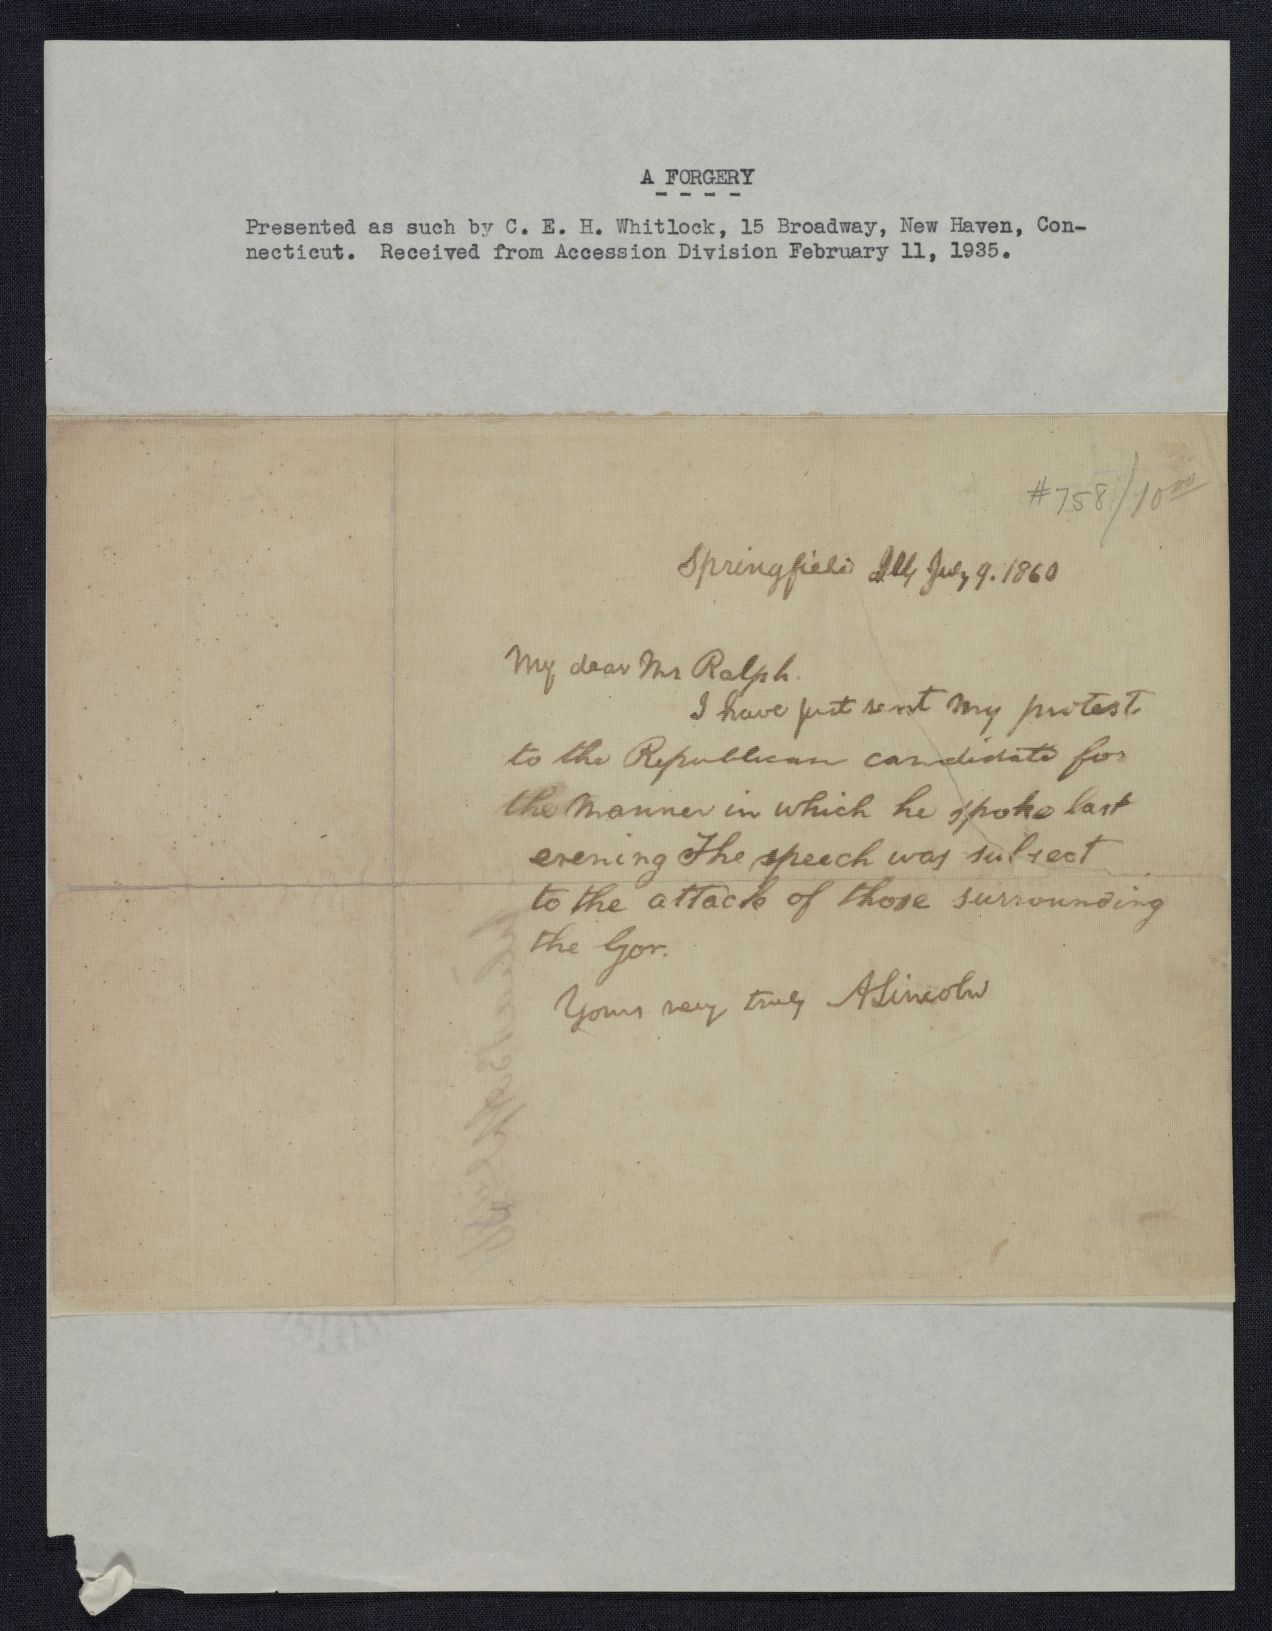 A FORGERY
Presented as such by C. E. H. Whitlock, 15 Broadway, New Haven, Con-
necticut. Received from Accession Division February 11, 1935.
#758/10 00
Springfield Ills July 9. 1860
My dear Mr Ralph.
I have just sent my protest
to the Republican candidate for
the manner in which he spoke last
evening The speech was subject
to the attack of those surrounding
the Gov.
Yours very truly ALincoln